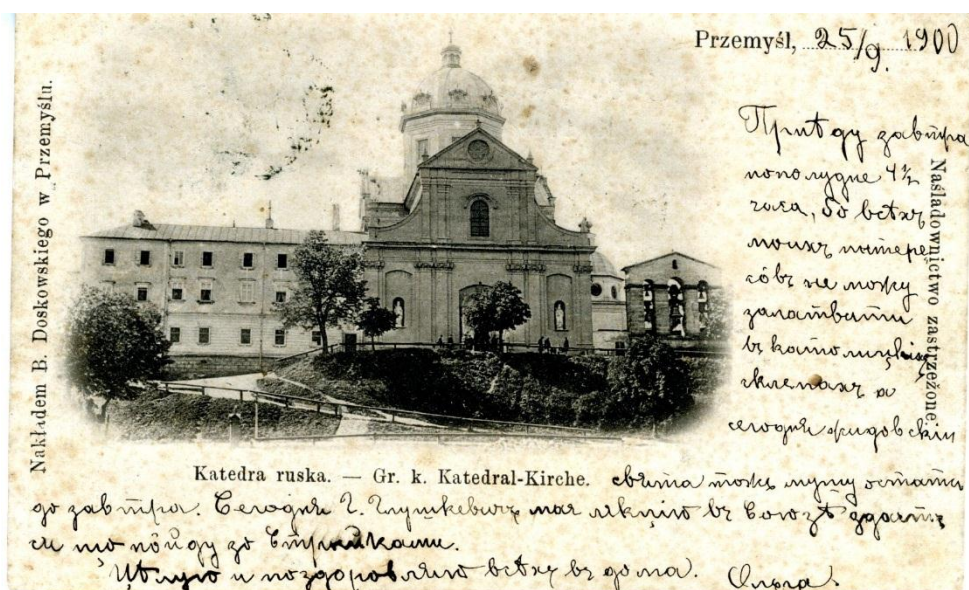 Przemyśl, 25/9. 1900
Nakładem B. Doskowskiego w Przemyślu.
Naśladownictwo zastrzeżone.
Приѣду завтра
пополудне 4½
часа, бо всѣхъ
моихъ интере
совъ не можу
залатвити
въ католицкихъ
склепахъ а
сегодня жидовскіи
Katedra ruska. — Gr. k. Katedral-Kirche.
свята можъ мушу остати
до завтра. Сегодня Г. Глушкевичъ мае лекцію въ Союзѣ здаєть
ся що пойду зо Стрыйками.
Цѣлую и поздоровляю всѣхъ въ дома. Ольга.